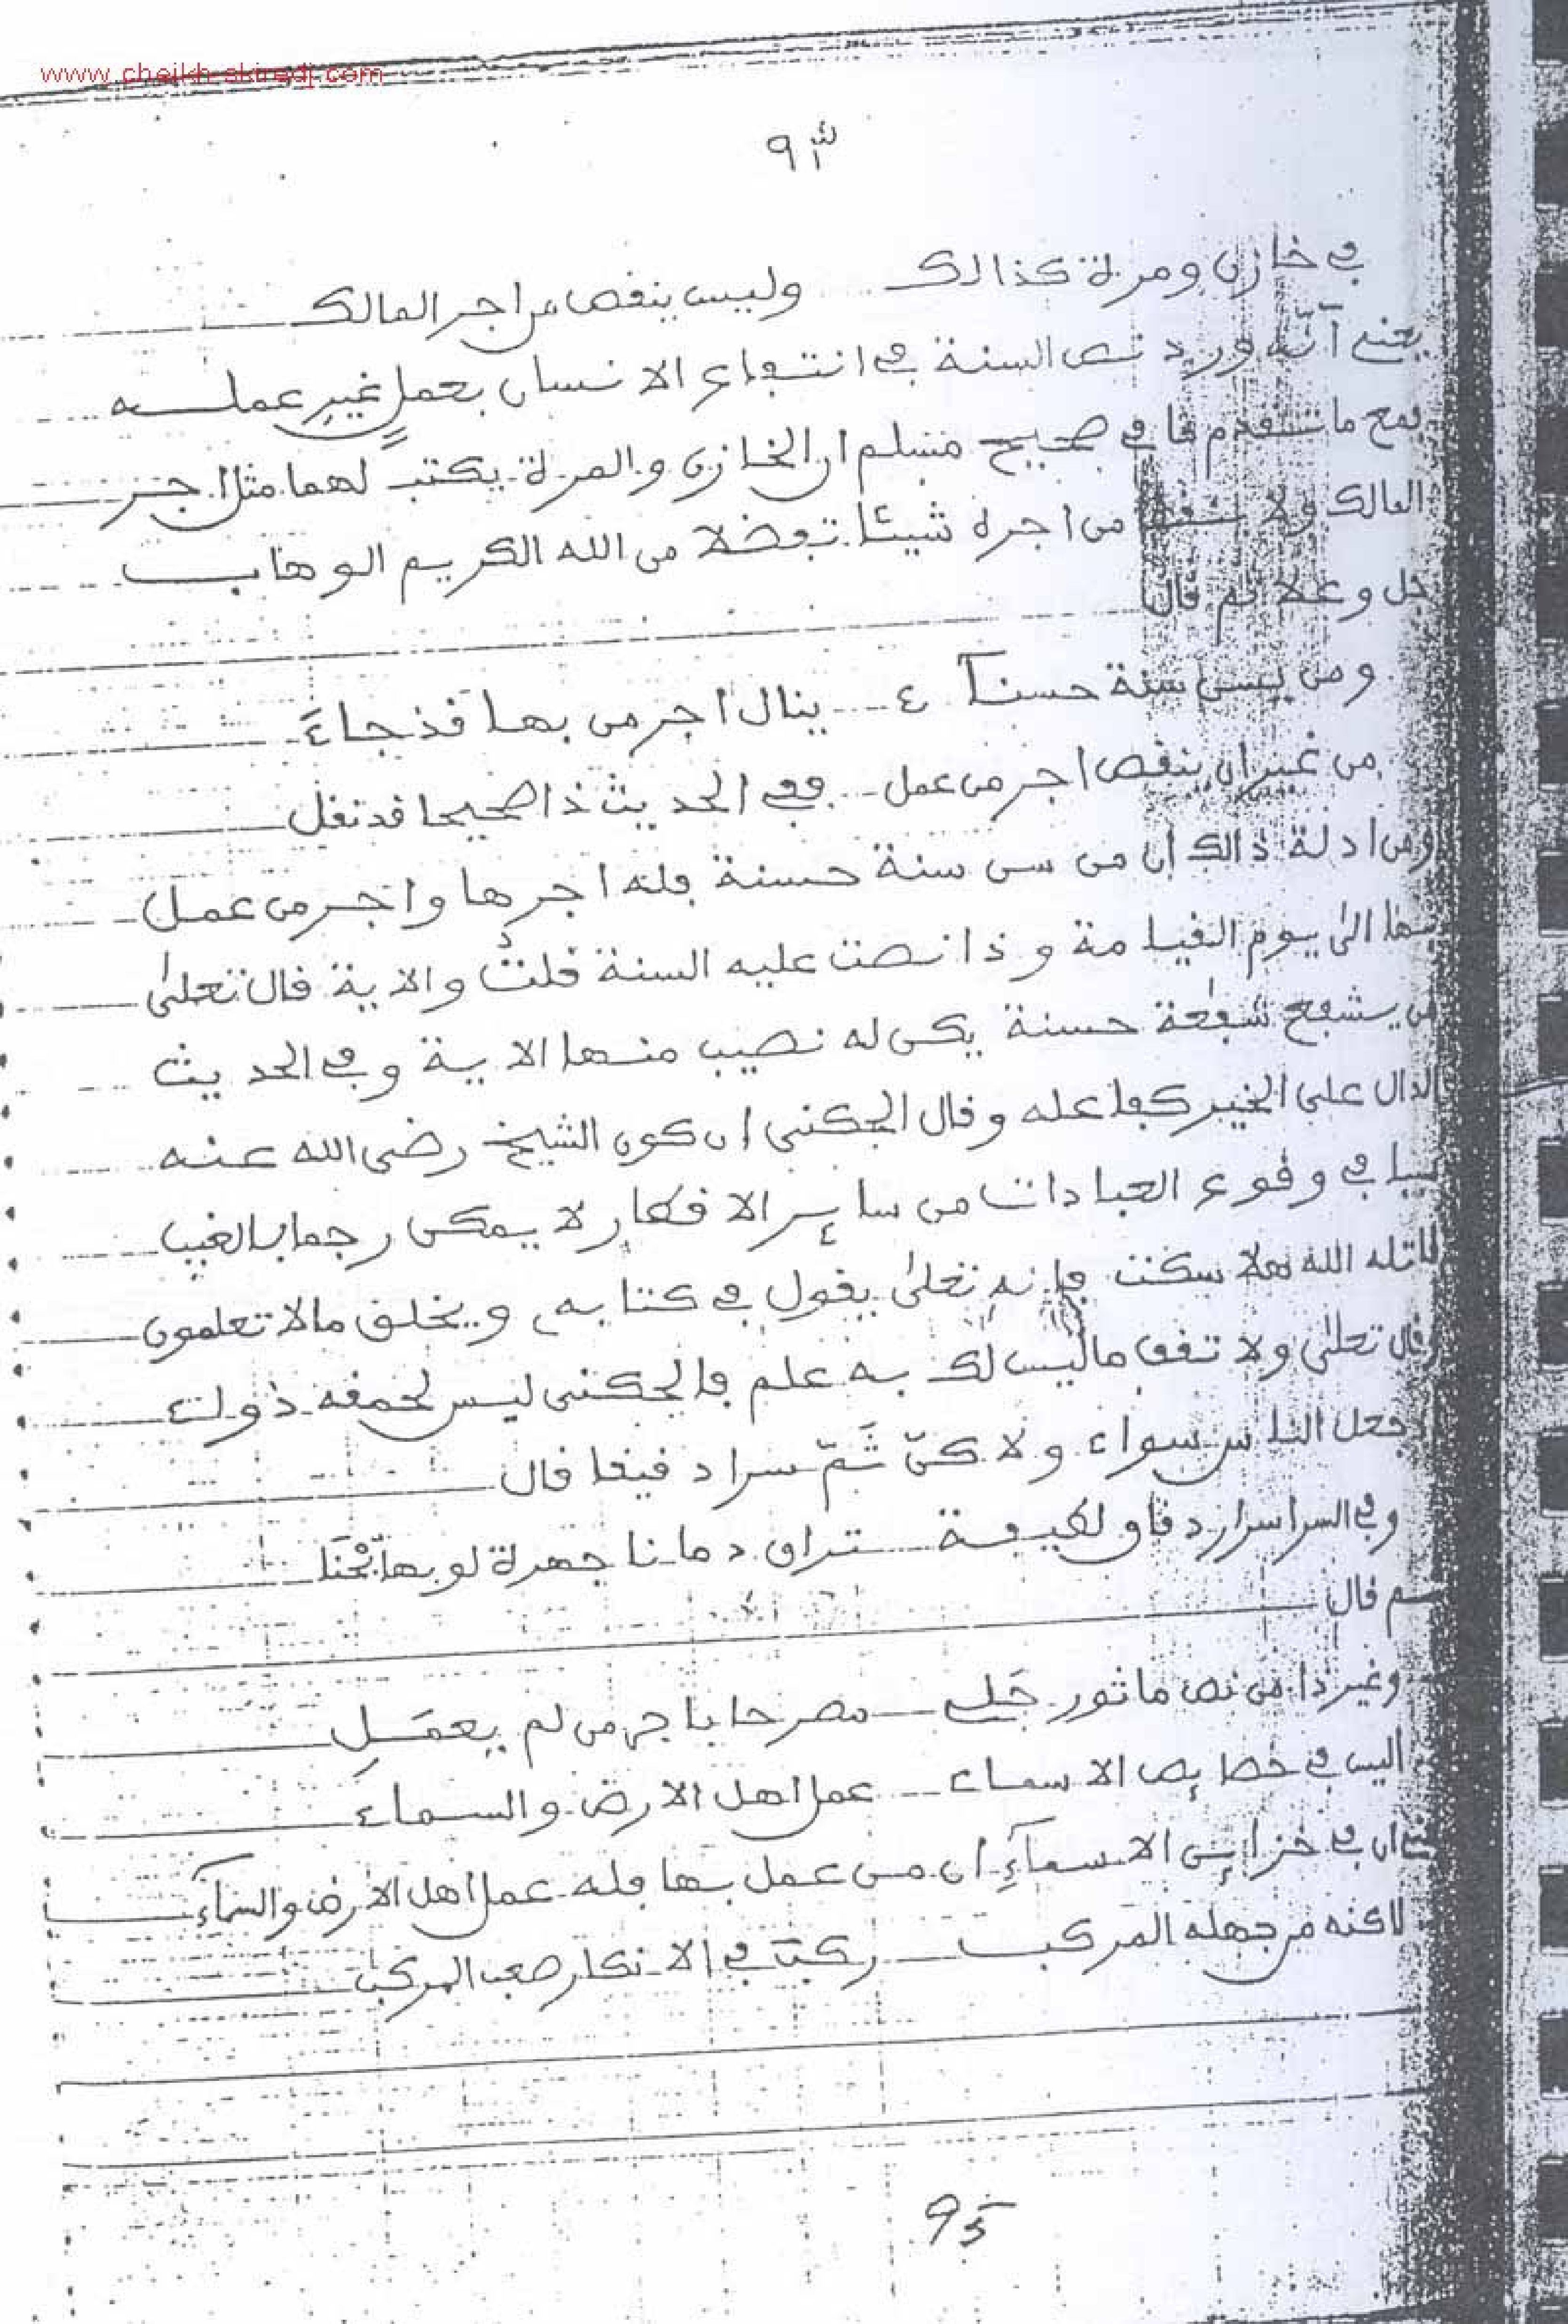 www.cheikh-skiredj.com
٩٣
في خازن ومرءة كذالك وليس ينقص من اجر المالك
يعني أنّه ورد نص السنة في انتفاع الانسان بعملٍ غيرِ عمله
فمع ما تقدم ما في صحيح مسلم ان الخازن والمرءة يكتب لهما مثل اجر
المالك ولا من اجره شيئا تفضلا من الله الكريم الوهاب
جل وعلا ثم قال
ومن يسن سنة حسنآء ينال اجر من بها قد جاءَ
من غير ان ينقص اجر من عمل ففي الحديث ذا صحيحا قد نقل
ومن ادلة ذالك ان من سن سنة حسنة فله اجرها واجر من عمل
بها الى يوم القيامة وذا نصت عليه السنة قلتُ والاية قال تعلى
من يشفع شفعة حسنة يكن له نصيب منها الاية وفي الحديث
الدال على الخير كفاعله وقال الجكني ان كون الشيخ رضي الله عنه
سببا في وقوع العبادات من ساير الاقطار لا يمكن رجما بالغيب
قاتله الله هلا سكت فإنه تعلى يقول في كتابه ويخلق ما لا تعلمون
وقال تعلى ولا تقف ما ليس لك به علم فالجكني ليس لحمقه دواء
جعل الناس سواء ولاكنّ ثَمّ سرا دقيقا قال
وفي السر اسرار دقاق لطيفة تراق دمانا جهرة لو بها بُحْنَا
ثم قال
وغير ذا من نص ماثور جَلِي مصرحا باجر من لم يعمَلِ
اليس في خصايص الاسماء عمل اهل الارض والسماء
ان في خزاين الاسمآءِ ان من عمل بها فله عمل اهل الارض والسمآء
لاكنه من جهله المركب ركبَ في الانكار صعب المركب
95